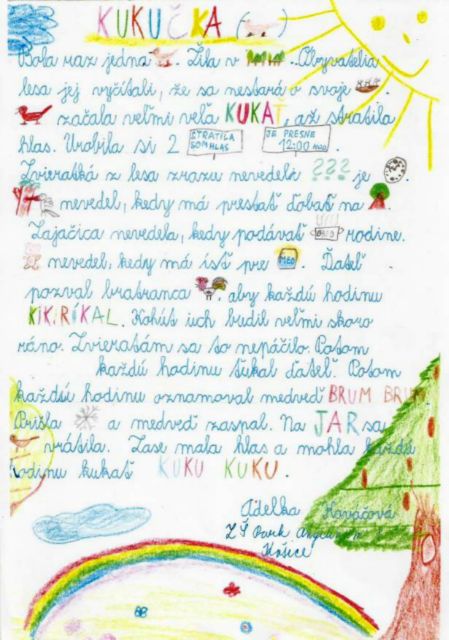 KUKUČKA ( )
Bola raz jedna . Žila v . Obyvatelia
lesa jej vyčítali, že sa nestará o svoje .
začala veľmi veľa KUKAŤ, až stratila
hlas. Urobila si 2 STRATILA SOM HLAS JE PRESNE 12:00 HOD .
Zvieratká z lesa zrazu nevedeli ??? je .
nevedel, kedy má prestať ďobať na .
Zajačica nevedela, kedy podávať OBED rodine.
nevedel, kedy má ísť pre MED . Ďateľ
pozval bratranca , aby každú hodinu
KIKIRÍKAL. Kohút ich budil veľmi skoro
ráno. Zvieratám sa to nepáčilo. Potom
každú hodinu ťukal ďateľ. Potom
každú hodinu oznamoval medveď BRUM BRUM.
Prišla a medveď zaspal. Na JAR sa
vrátila. Zase mala hlas a mohla každú
hodinu kukať KUKU KUKU .
Adelka Kováčová
ZŠ Park Angelinum
Košice